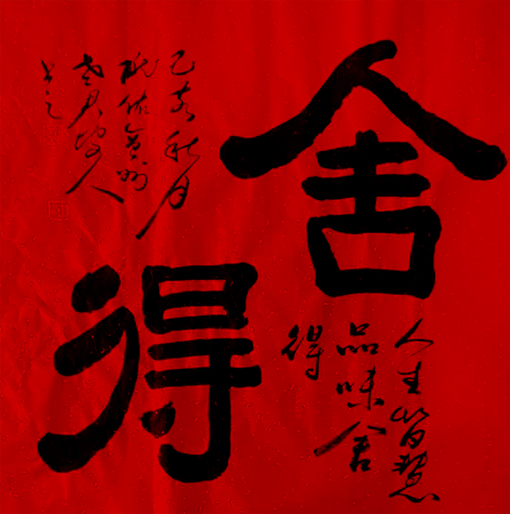 舍得
人生智慧
品味舍
得
乙亥秋月
书之